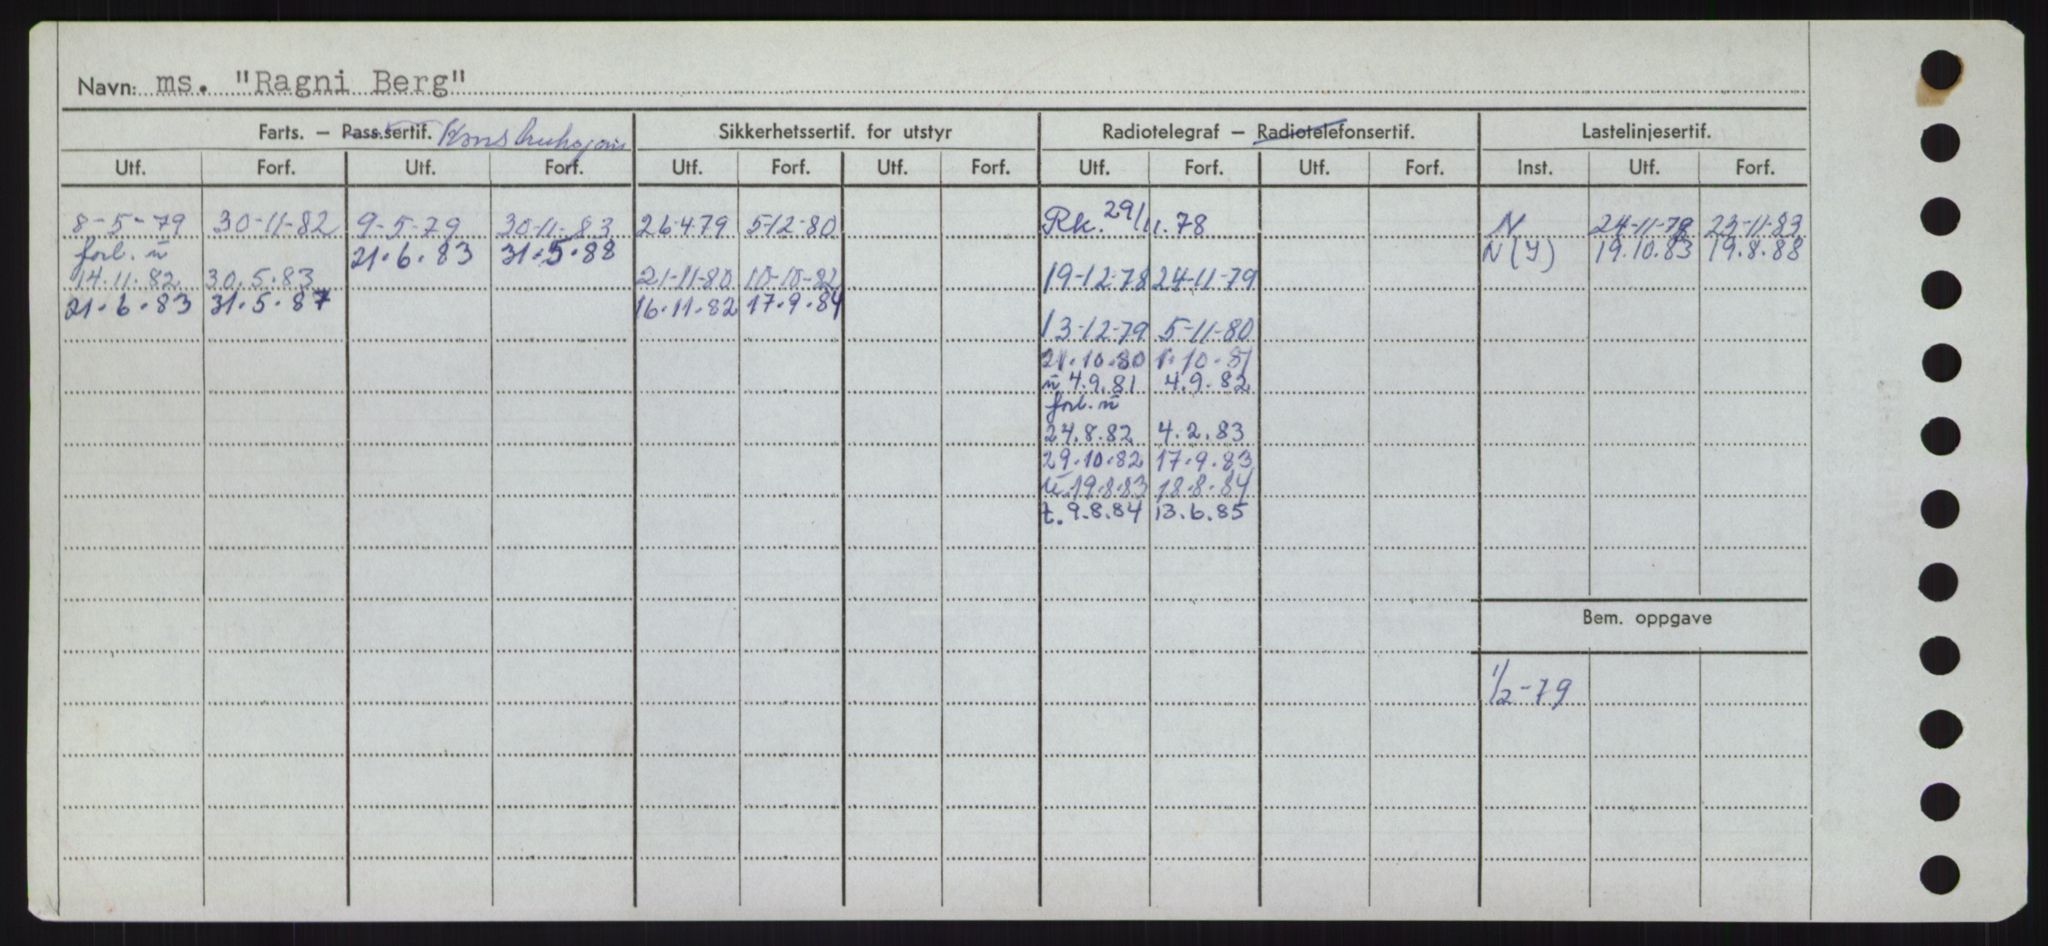 Navn: ms. "Ragni Berg"
Farts. – Pass.sertif. Konstruksjons Sikkerhetssertif. for utstyr Radiotelegraf – Radiotelefonsertif. Lastelinjesertif.
Utf. Forf. Utf. Forf. Utf. Forf. Utf. Forf. Utf. Forf. Utf. Forf. Inst. Utf. Forf.
8-5-79 30-11-82 9-5-79 30-11-83 26-4-79 5-12-80 Rk. 29/11.78 N 24-11-78 23-11-83
forl. ū 21.6.83 31.5.88 N(Y) 19.10.83 19.8.88
14.11.82 30.5.83 21-11-80 10-10-82 19-12-78 24-11-79
21.6.83 31.5.87 16.11.82 17.9.84
13-12-79 5-11-80
21.10.80 1.10.81
ū 4.9.81 4.9.82
forl. ū
24.8.82 4.2.83
29.10.82 17.9.83
ū.19.8.83 18.8.84
t. 9.8.84 13.6.85
Bem. oppgave
1/2-79